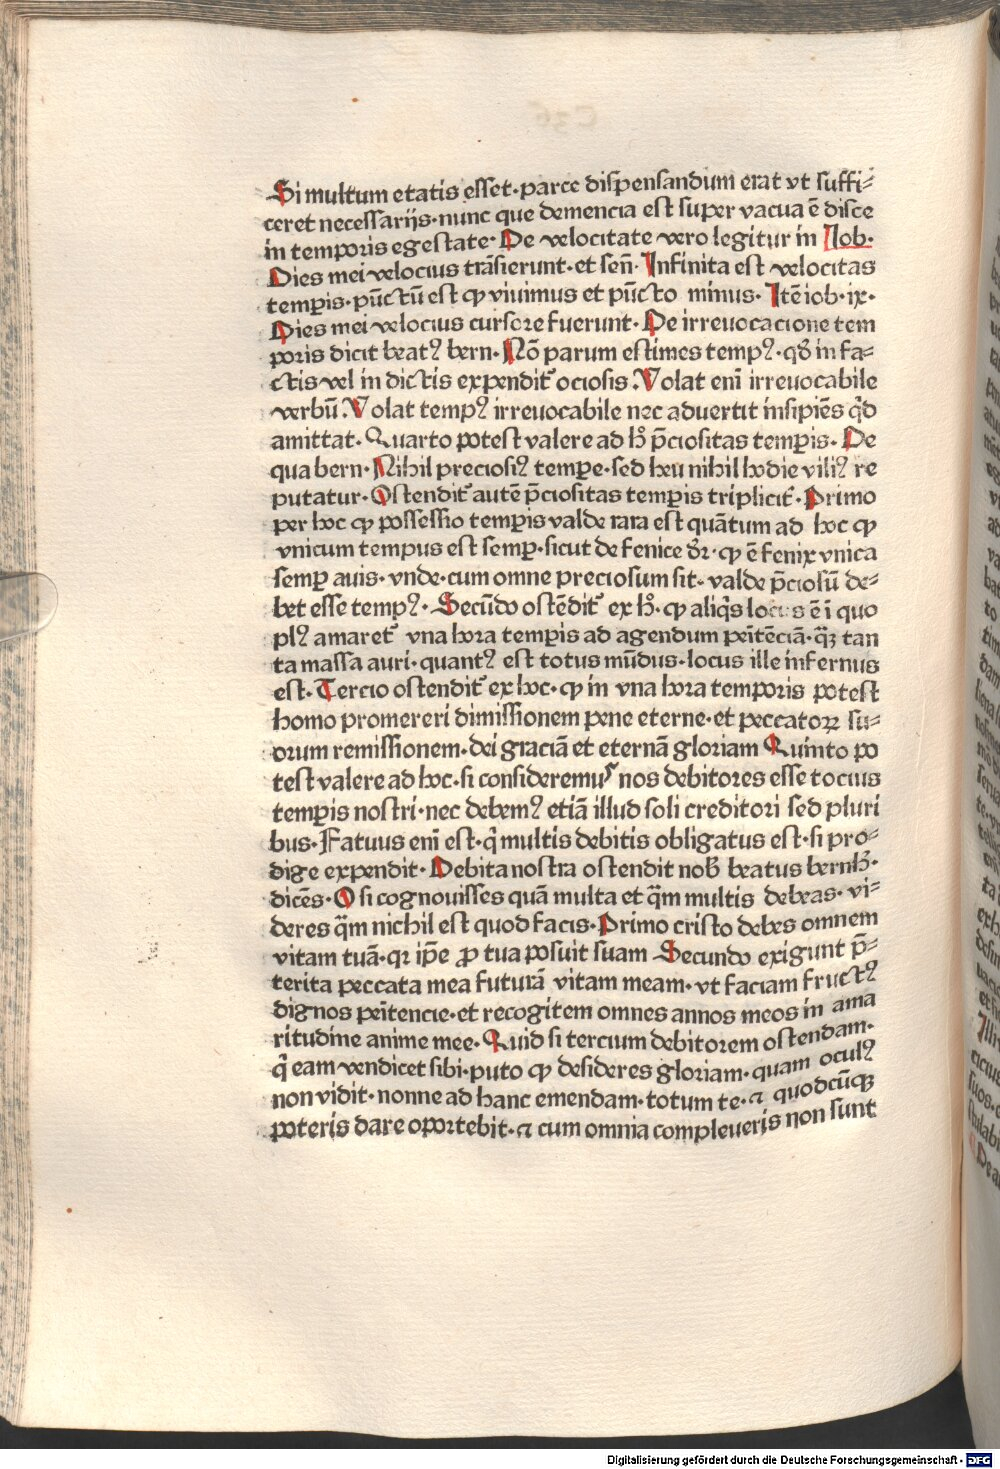 Si multum etatis esset·parce dispensandum erat vt suffi⸗
ceret necessarijs·nunc que demencia est super vacua ē disce
in temporis egestate·De velocitate vero legitur in Iob·
Dies mei velocius trāsierunt·et señ·Infinita est velocitas
temp̱is·pūctū est ꝙ viuimus et pūcto minus·Itē iob·ix·
Dies mei velocius cursore fuerunt·De irreuocacione tem
poris dicit beatꝰ bern·Nō parum estimes tempꝰ·qđ in fa⸗
ctis vel in dictis expendit᷑ ociosis·Volat eni irreuocabile
verbū·Volat tempꝰ irreuocabile nec aduertit insipiēs qd̄
amittat·Quarto potest valere ad h̄ p̄ciositas temp̱is·De
qua bern·Nihil preciosiꝰ tempe·sed heu nihil hodie viliꝰ re
putatur·Ostendit᷑ autē p̄ciositas temp̱is triplicit᷑·Primo
per hoc ꝙ possessio temp̱is valde rara est quātum ad hoc ꝙ
vnicum tempus est semp̱·sicut de fenice dr̄·ꝙ ē fenix vnica
semp̱ auis·vnde·cum omne preciosum sit·valde p̄ciosū de⸗
bet esse tempꝰ·Secūdo ostēdit᷑ ex h̄·ꝙ aliq̄s locus ē ī quo
plꝰ amaret᷑ vna hora temp̱is ad agendum pēitēciā·q̄ꝫ tan
ta massa auri·quantꝰ est totus mūdus·locus ille infernus
est·Tercio ostendit᷑ ex hoc·ꝙ in vna hora temporis potest
homo promereri dimissionem pene eterne·et peccatoꝝ su⸗
orum remissionem·dei graciā et eternā gloriam Quinto po
test valere ad hoc·si consideremuˢ nos debitores esse tocius
temp̱is nostri·nec debemꝰ etiā illud soli creditori sed pluri
bus·Fatuus eni est·q̄ multis debitis obligatus est·si pro⸗
dige expendit·Debita nostra ostendit nob̄ beatus bernh̄·
dicēs·O si cognouisses quā multa et q̄m multis debeas·vi⸗
deres q̄m nichil est quod facis·Primo cristo debes omnem
vitam tuā·qꝛ ip̄e ꝓ tua posuit suam Secundo exigunt p̄⸗
terita peccata mea futurā vitam meam·vt faciam fructꝰ
dignos pēitencie·et recogitem omnes annos meos in ama
ritudine anime mee·Quid si tercium debitorem ostendam·
q̄ eam vendicet sibi·puto ꝙ desideres gloriam·quam oculꝰ
non vidit·nonne ad hanc emendam·totum te·⁊ quodcūqꝫ
poteris dare oportebit·⁊ cum omnia compleueris non sunt
Digitalisierung gefördert durch die Deutsche Forschungsgemeinschaft - DFG